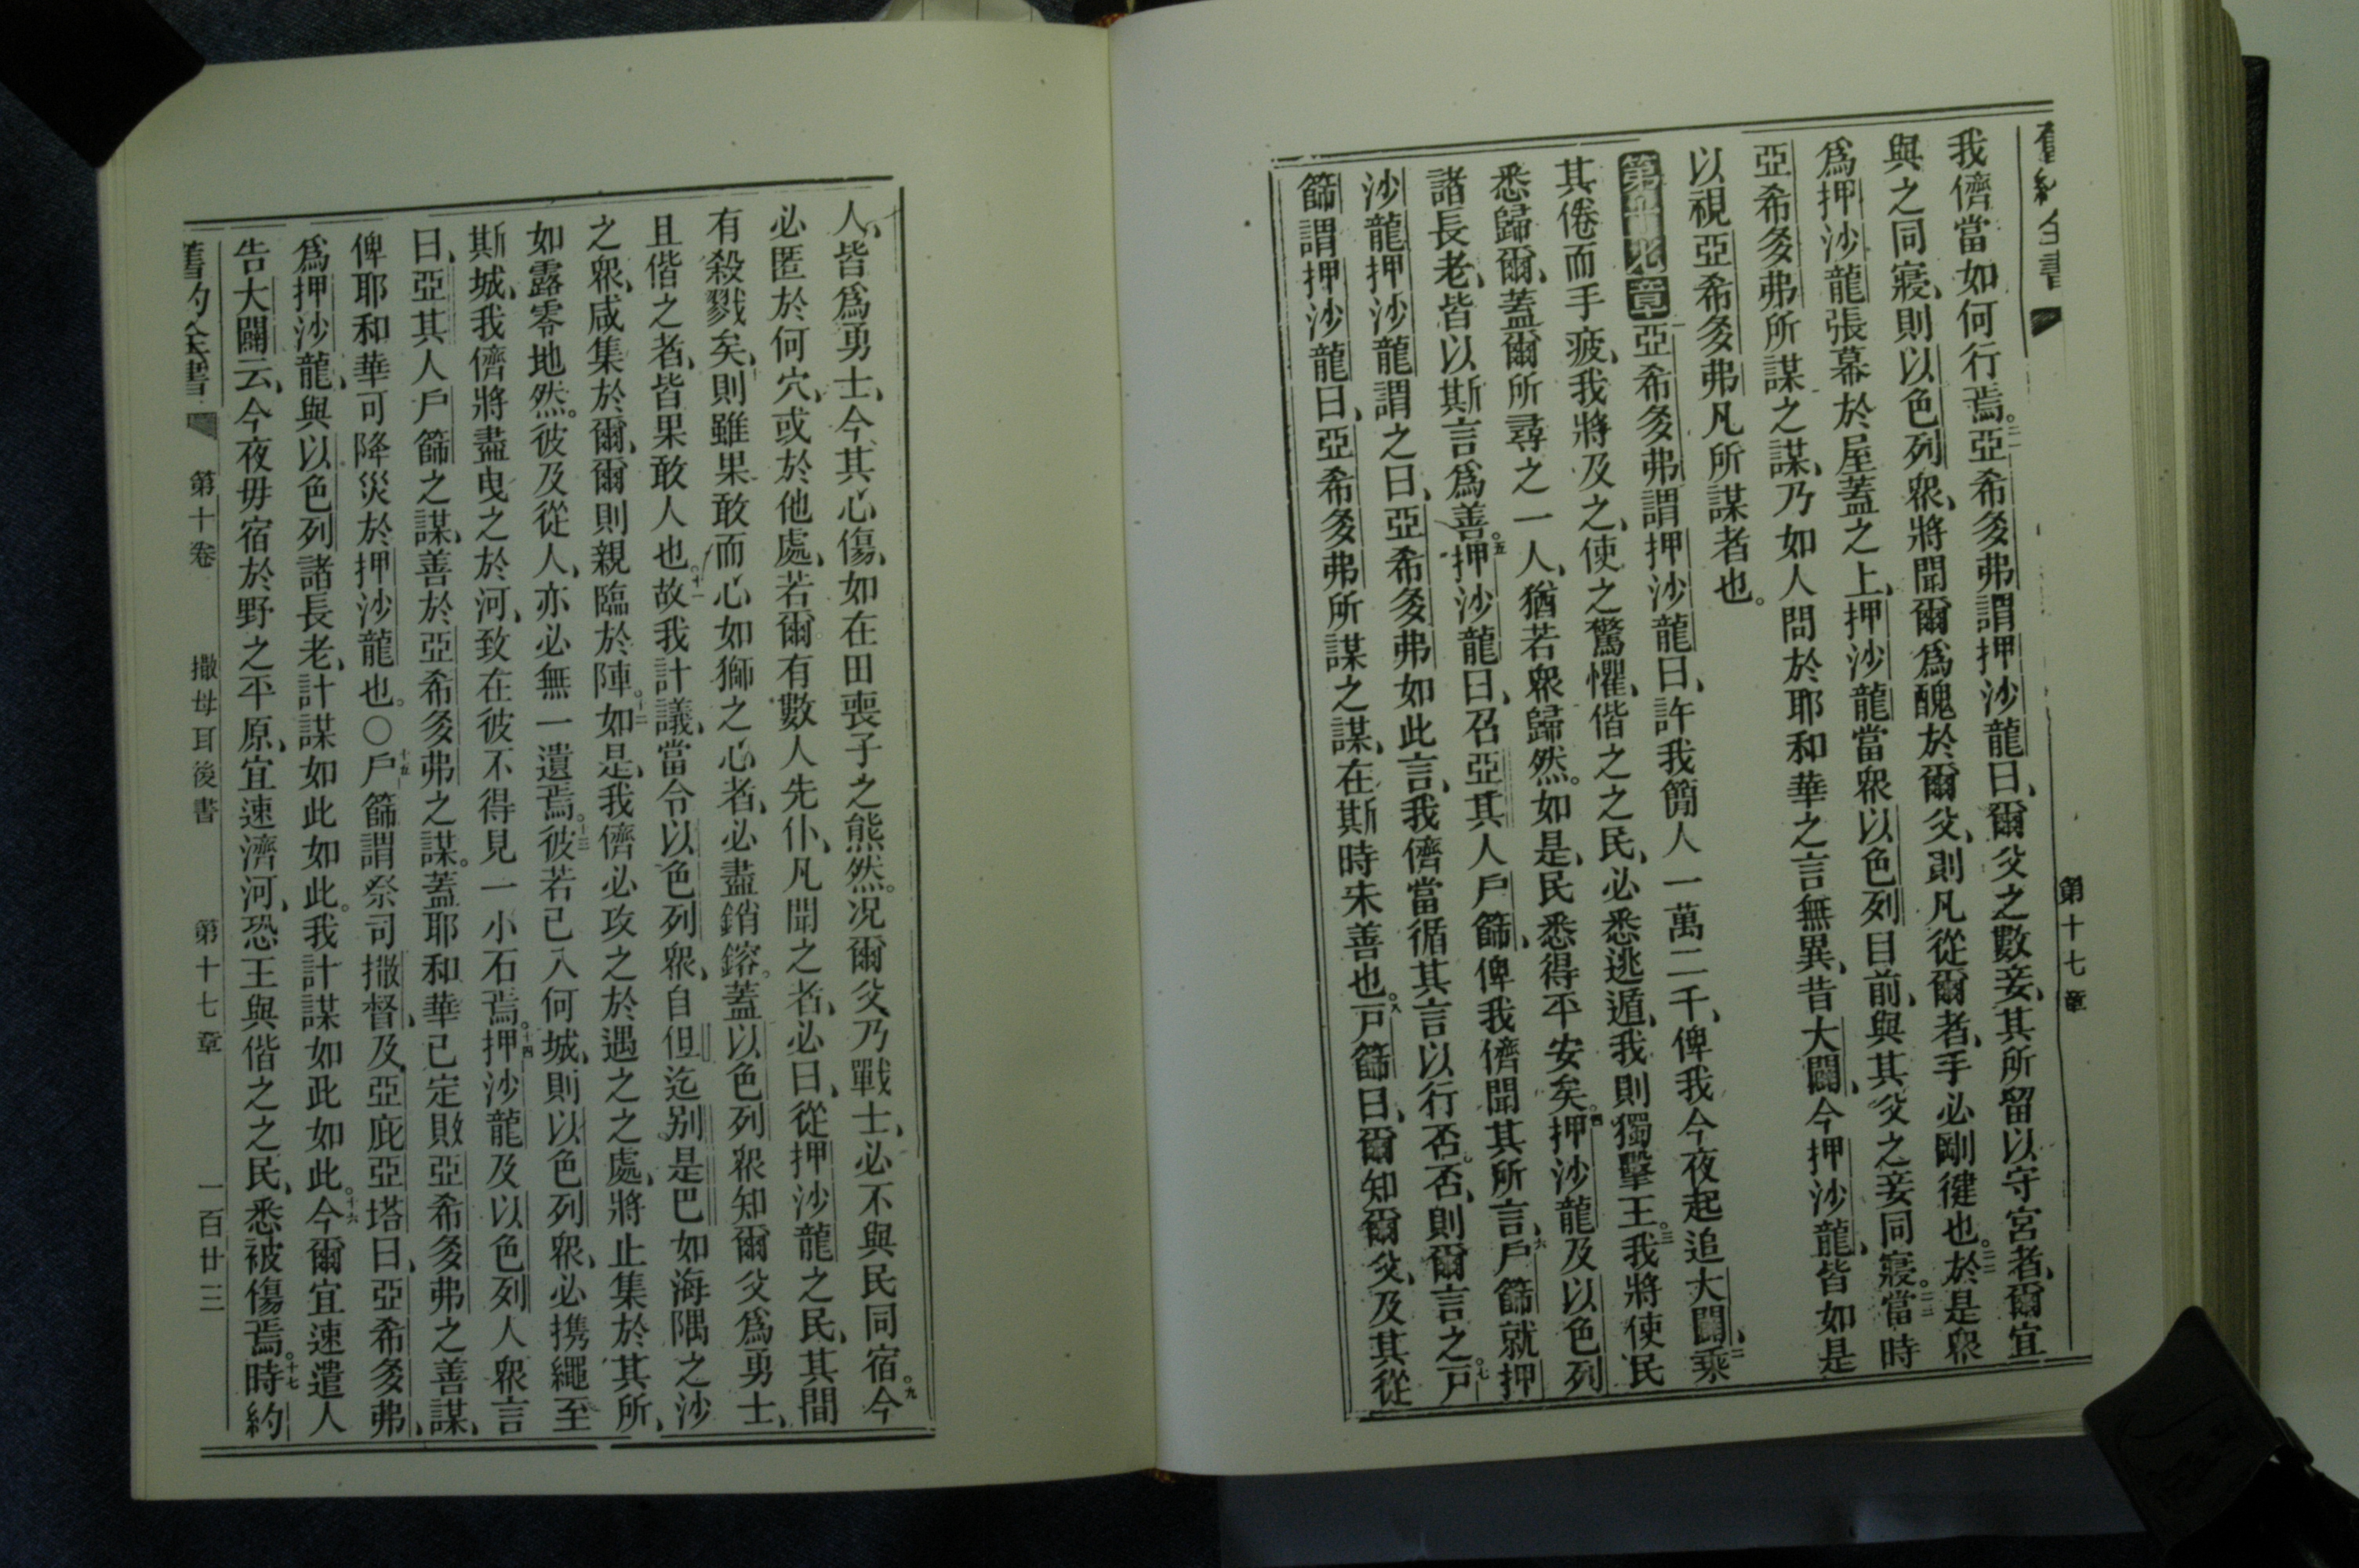 舊約全書 第十七章
我儕當如何行焉。二一亞希多弗謂押沙龍曰、爾父之數妾、其所留以守宮者、爾宜
與之同寢、則以色列眾、將聞爾爲醜於爾父、則凡從爾者、手必剛健也。二二於是眾
爲押沙龍張幕於屋蓋之上、押沙龍當眾以色列目前、與其父之妾同寢。二三當時
亞希多弗所謀之謀、乃如人問於耶和華之言無異、昔大闢、今押沙龍、皆如是
以視亞希多弗凡所謀者也。
第十七章 亞希多弗謂押沙龍曰、許我簡人一萬二千、俾我今夜起追大闢、二乘
其倦而手疲、我將及之、使之驚懼、偕之之民、必悉逃遁、我則獨擊王。三我將使民
悉歸爾、蓋爾所尋之一人、猶若眾歸然。如是、民悉得平安矣。四押沙龍及以色列
諸長老、皆以斯言爲善。五押沙龍曰、召亞其人戶篩、俾我儕聞其所言、六戶篩就押
沙龍押沙龍謂之曰、亞希多弗如此言、我儕當循其言以行否、否則爾言之。七戶
篩謂押沙龍曰、亞希多弗所謀之謀、在斯時未善也。八戶篩曰、爾知爾父、及其從
人、皆爲勇士、今其心傷、如在田喪子之熊然。况爾父乃戰士、必不與民同宿。九今
必匿於何穴、或於他處、若爾有數人先仆、凡聞之者、必曰、從押沙龍之民、其間
有殺戮矣、十則雖果敢而心如獅之心者、必盡銷鎔。蓋以色列眾知爾父爲勇士、
且偕之者、皆果敢人也。十一故我計議、當令以色列眾、自但迄别是巴如海隅之沙
之眾、咸集於爾、爾則親臨於陣。十二如是、我儕必攻之於遇之之處、將止集於其所、
如露零地然。彼及從人、亦必無一遺焉。十三彼若已入何城、則以色列眾、必携繩至
斯城、我儕將盡曳之於河、致在彼不得見一小石焉。十四押沙龍及以色列人眾言
曰、亞其人戶篩之謀、善於亞希多弗之謀。蓋耶和華已定敗亞希多弗之善謀、
俾耶和華可降災於押沙龍也。〇十五戶篩謂祭司撒督、及亞庇亞塔曰、亞希多弗、
爲押沙龍、與以色列諸長老、計謀如此如此。我計謀如此如此。十六今爾宜速遣人
告大闢云、今夜毋宿於野之平原、宜速濟河、恐王與偕之之民、悉被傷焉。十七時約
舊約全書 第十卷 撒母耳後書 第十七章 一百廿三